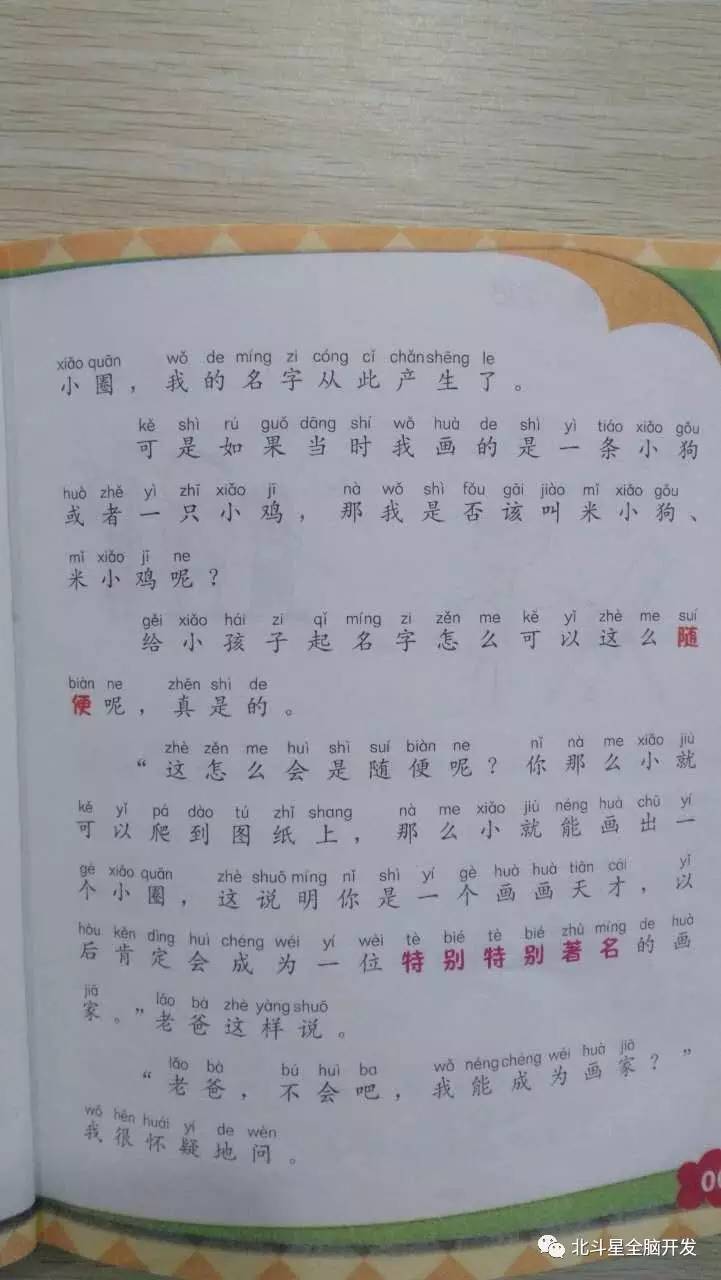 xiǎo quān wǒ de míng zi cóng cǐ chǎnshēng le
小圈，我的名字从此产生了。
kě shì rú guǒ dāng shí wǒ huà de shì yì tiáo xiǎo gǒu
可是如果当时我画的是一条小狗
huò zhě yì zhī xiǎo jī nà wǒ shì fǒu gāi jiào mǐ xiǎo gǒu
或者一只小鸡，那我是否该叫米小狗、
mǐ xiǎo jī ne
米小鸡呢？
gěi xiǎo hái zi qǐ míng zi zěn me kě yǐ zhè me suí
给小孩子起名字怎么可以这么随
biàn ne zhēn shì de
便呢，真是的。
zhè zěn me huì shì suí biàn ne nǐ nà me xiǎo jiù
“这怎么会是随便呢？你那么小就
kě yǐ pá dào tú zhǐ shang nà me xiǎo jiù néng huà chū yí
可以爬到图纸上，那么小就能画出一
gè xiǎo quān zhè shuō míng nǐ shì yí gè huà huà tiān cái yǐ
个小圈，这说明你是一个画画天才，以
hòu kěn dìng huì chéng wéi yí wèi tè bié tè bié zhù míng de huà
后肯定会成为一位特别特别著名的画
jiā lǎo bà zhè yàng shuō
家。”老爸这样说。
lǎo bà bú huì ba wǒ néng chéng wéi huà jiā
“老爸，不会吧，我能成为画家？”
wǒ hěn huái yí de wèn
我很怀疑地问。
北斗星全脑开发